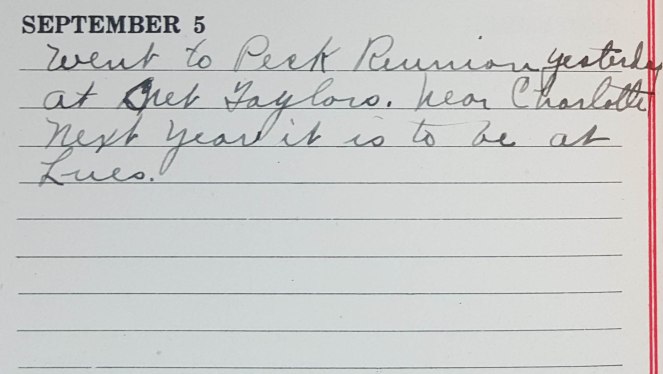 SEPTEMBER 5
Went to Peck Reunion yesterday
at Chet Taylors. Near Charlotte
Next Year it is to be at
Lues.